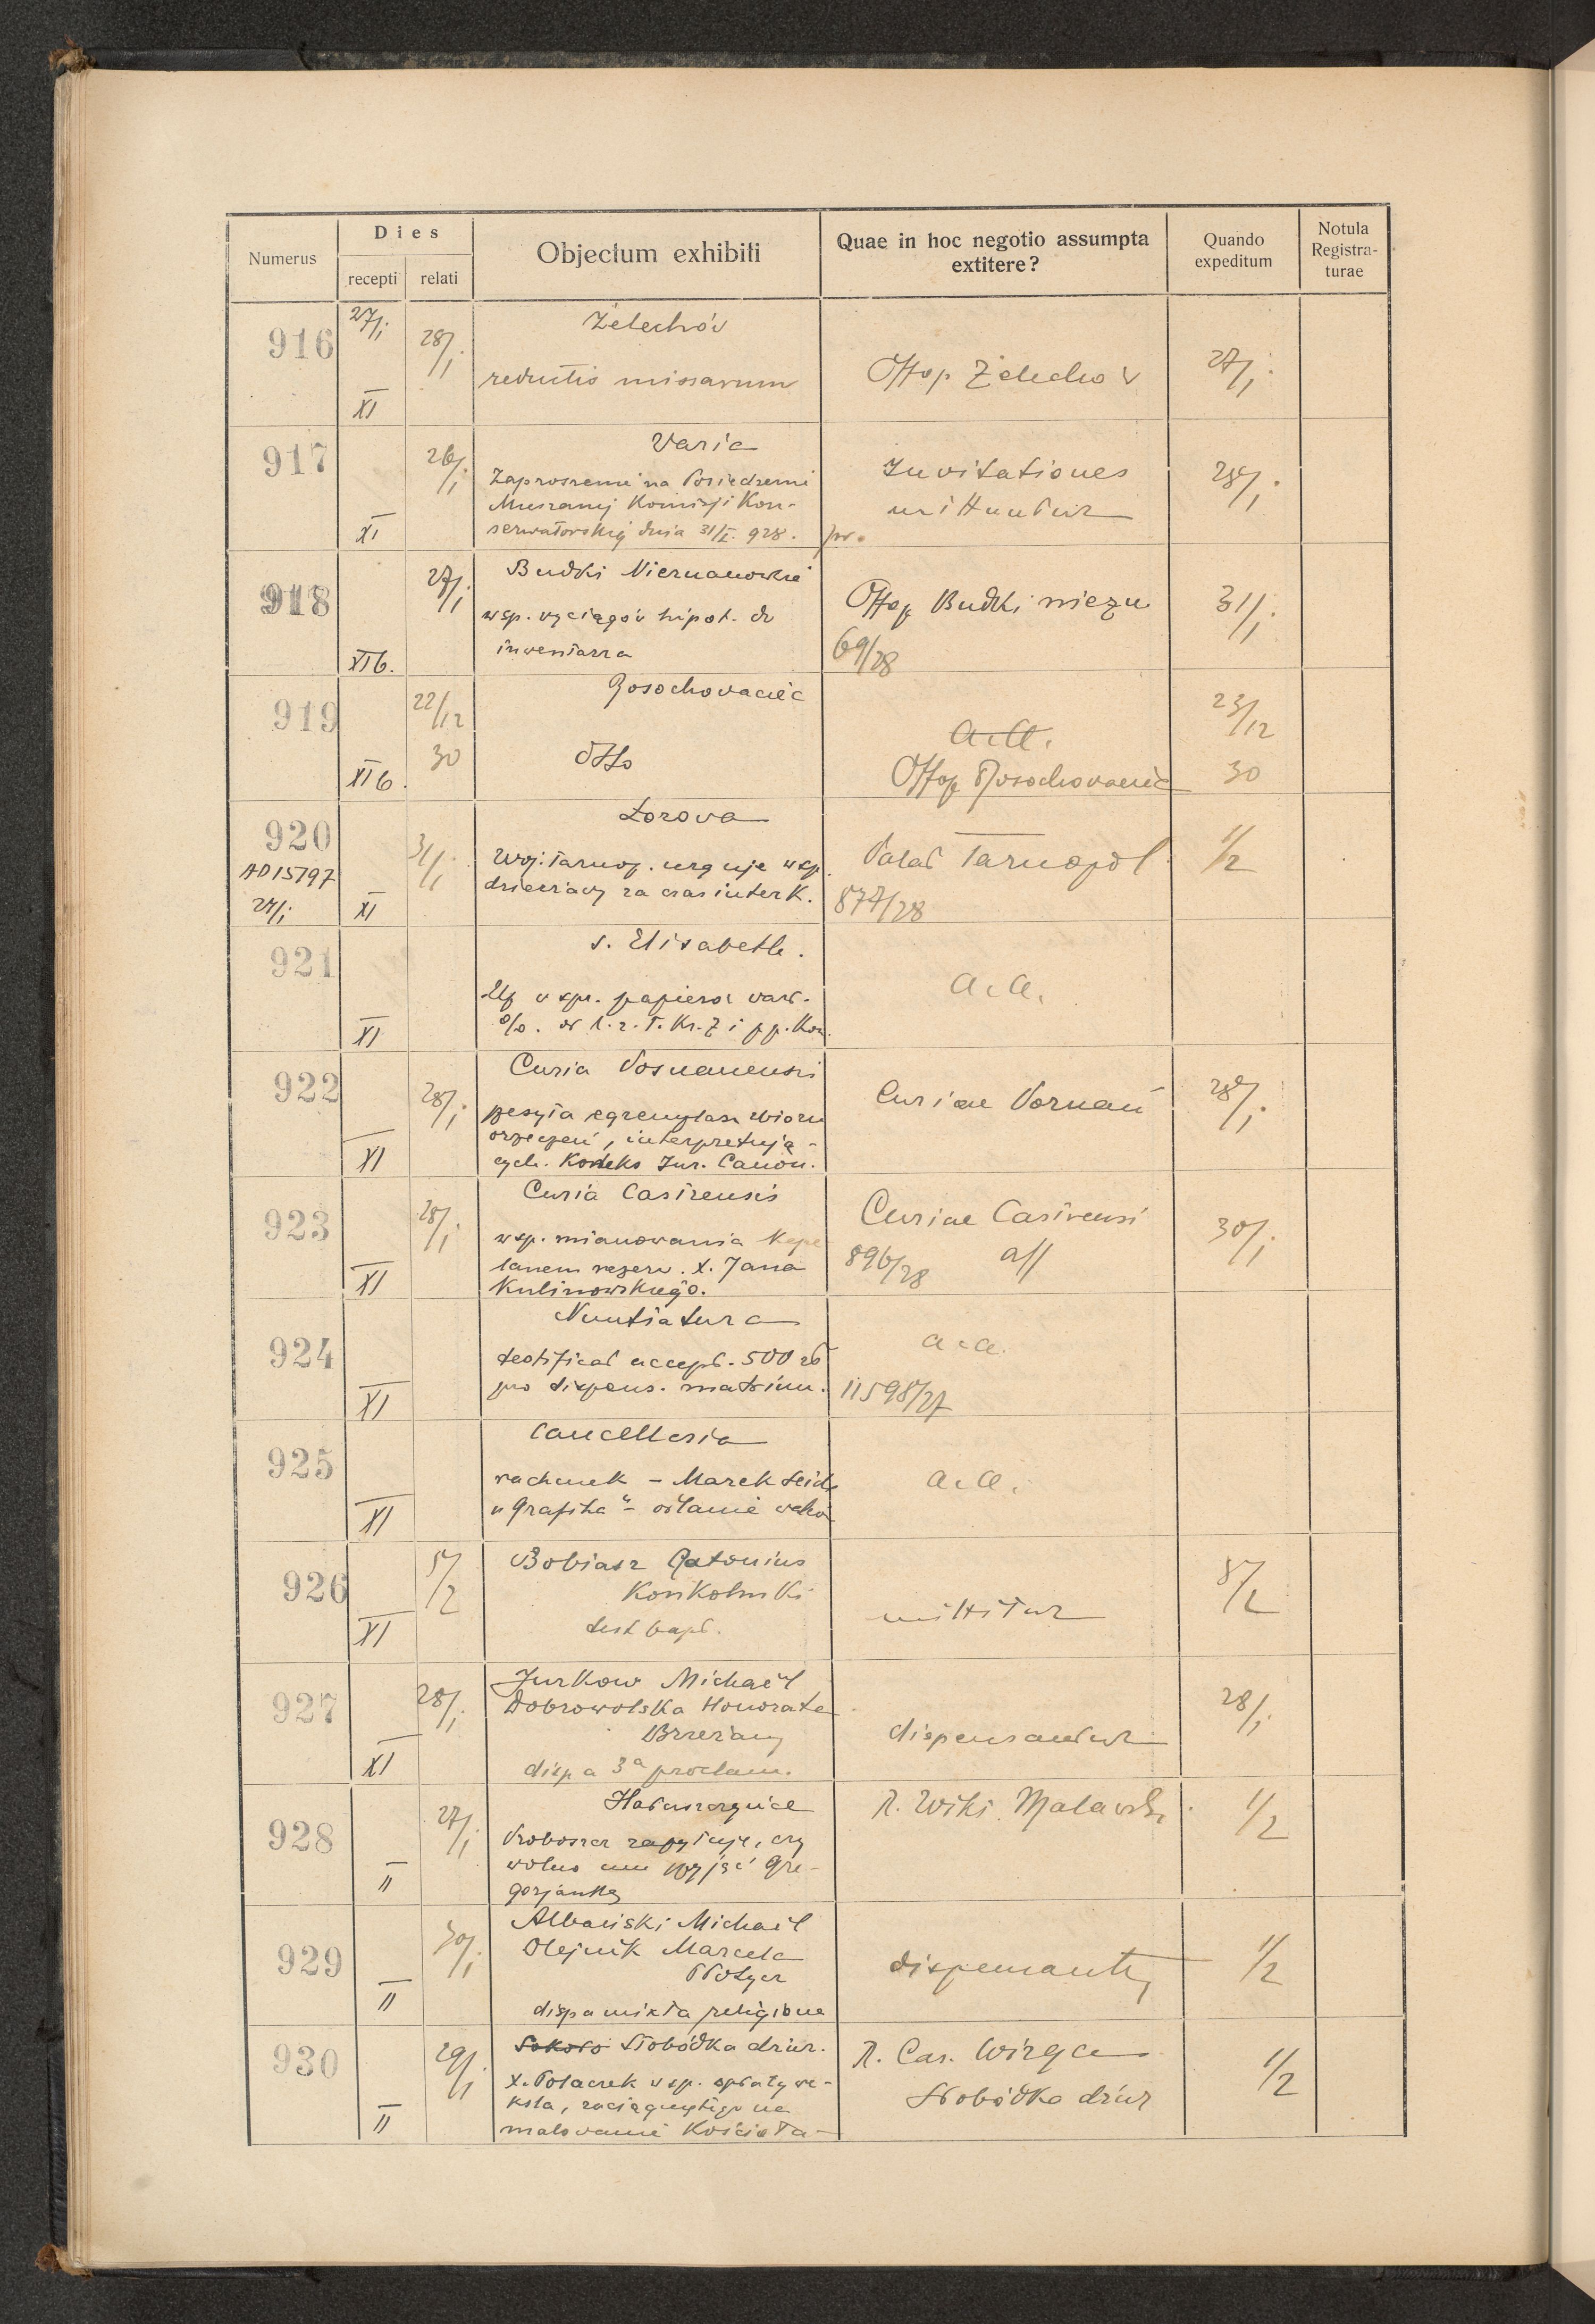 Numerus
Dies
recepti
relati
Objectum exhibiti
Quae in hoc negotio assumpta
extitere?
Quando
expeditum
Notula
Registra-
turae
916
27/I
28/I
XI
Żelechów
reductio missarum
Offop Żelechów
27/I
917
26/I
XI
Varia
Zaproszenie na Posiedzenie
Muzealnej Komisji Kon-
serwatorskiej dnia 31/I. 928.
Invitationes
mittuntur
pr.
28/I
918
27/I
XIb.
Budki Nieznanowskie
wsp. wyciągów hipot. do
inwentarza
Offop Budki niezn
69/28
31/I
919
22/12
30
XIb.
Rosochowaciec
Otto
a.a.
Offop Rosochowaciec
23/12
30
920
AD15797
27/I
31/I
XI
Łozowa
Woj. Tarnop. urguje wsp.
dzierżawy za czas interk.
Palat Tarnopol
877/28
1/2
921
XI
s. Elisabeth.
w spr. papierów wart.
a.a.
922
28/I
XI
Curia Posnanensis
egzemplarz zbioru
orzeczeń, interpretują-
cych. Kodeks Jur. Canon.
Curiae Poznań
28/I
923
28/I
XI
Curia Castrensis
wsp. mianowania Kape
lanem rezerw. X. Jana
Kulinowskiego.
Curiae Castrensi
896/28 aff
30/I
924
XI
Nuntiatura
testificat accept. 500 zł
pro dispens. matrim.
a.a.
11598/27
925
XI
Cancellaria
rachunek – Marek
"Grafika" –
a.a.
926
5/2
XI
Bobiasz Antonius
Konkolniki
test bapt.
mittitur
8/2
927
28/I
XI
Jurkow Michaël
Dobrowolska Honorata
Brzeżany
disp a 3a proclam.
dispensantur
28/I
928
27/I
II
Hałuszczyńce
Proboszcz zapytuje, czy
wolno mu wziąć Gre-
gorjankę
R. Wiki Malawski
1/2
929
30/I
II
Albański Michaël
Olejnik Marcela
disp a mixta religione
dispensantur
1/2
930
29/I
II
Sokoło Słobódka dżur.
X. Polaczek wsp. spłaty we-
ksla, zaciągniętego na
malowanie Kościoła –
R. Cas.
Słobódka dżur
1/2